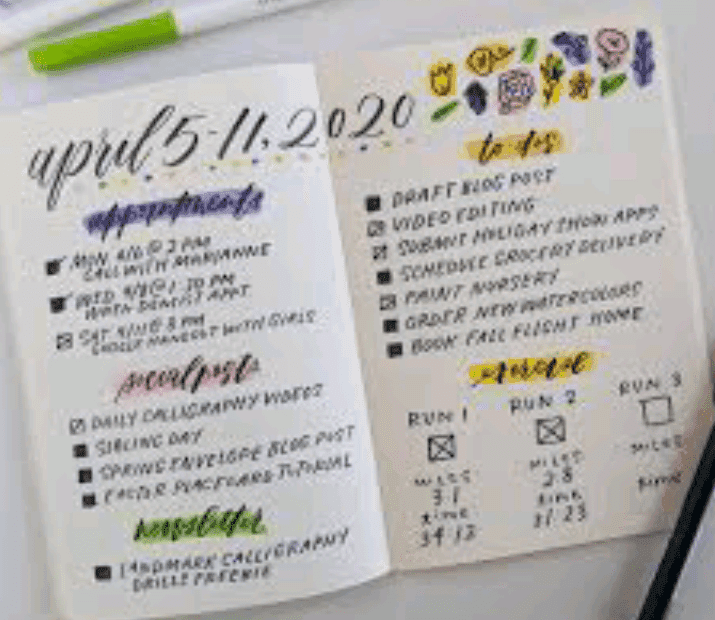 april 5-11, 2020
appointments
MON 4/6 @ 2 PM
CALL WITH MARIANNE
WED 4/8 @ 1:30 PM
DENTIST APPT
SAT 4/11 @ 8 PM
HANGOUT WITH GIRLS
social posts
DAILY CALLIGRAPHY VIDEOS
SIBLING DAY
SPRING ENVELOPE BLOG POST
EASTER PLACECARD TUTORIAL
newsletter
LANDMARK CALLIGRAPHY
DRILLS FREEBIE
to-dos
DRAFT BLOG POST
VIDEO EDITING
SUBMIT HOLIDAY SHOW APPS
SCHEDULE GROCERY DELIVERY
PAINT NURSERY
ORDER NEW WATERCOLORS
BOOK FALL FLIGHT HOME
exercise
RUN 1 RUN 2 RUN 3
MILES MILES MILES
3.1 2.8
TIME TIME TIME
34:12 31:23